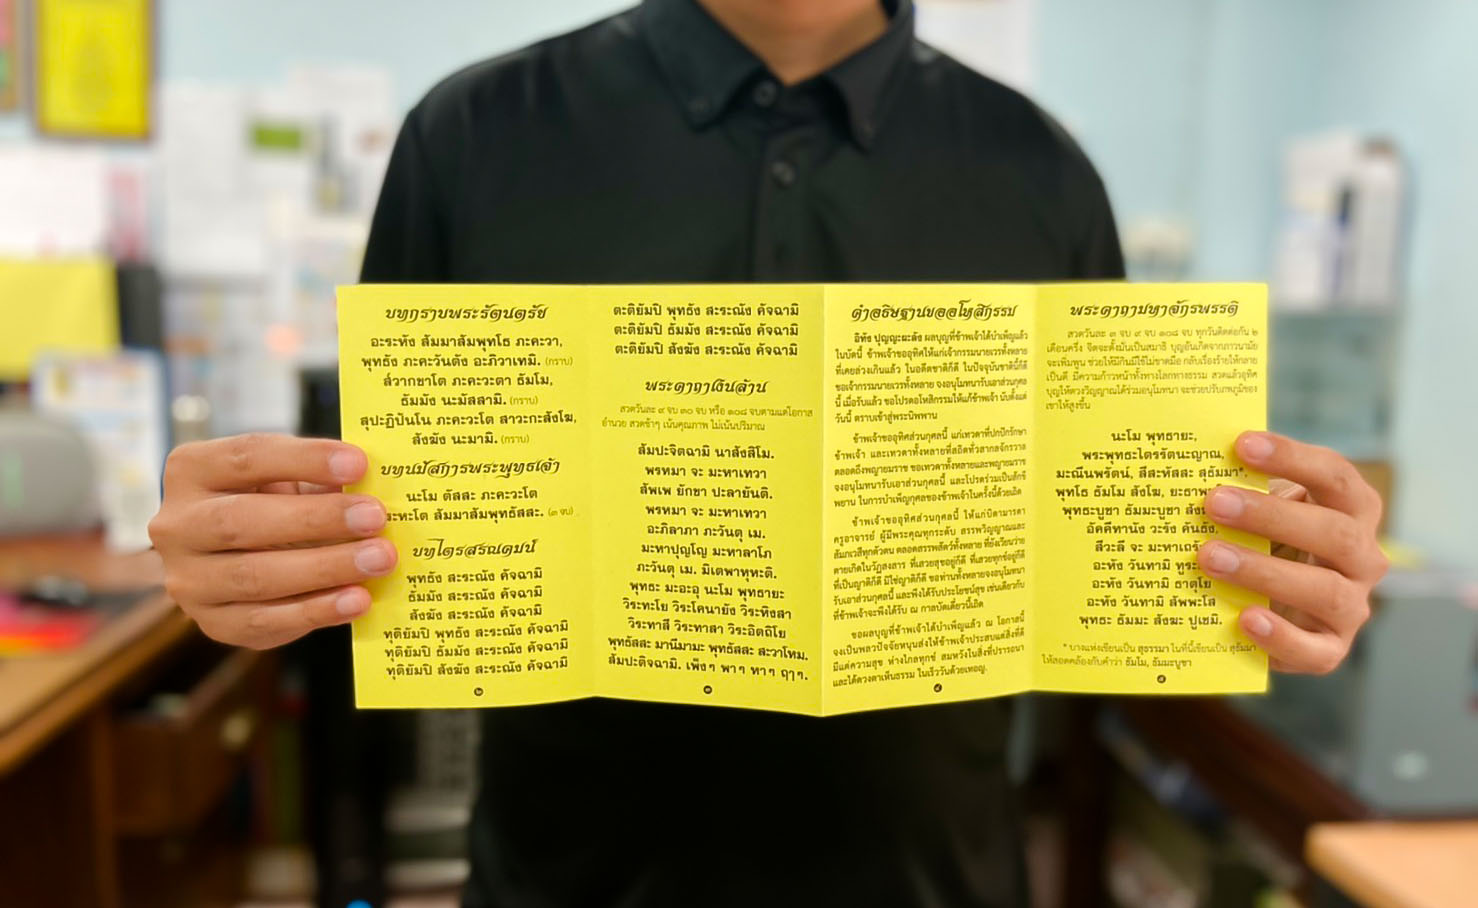 บทกราบพระรัตนตรัย
อะระหัง สัมมาสัมพุทโธ ภะคะวา,
พุทธัง ภะคะวันตัง อะภิวาเทมิ. (กราบ)
ส๎วากขาโต ภะคะวะตา ธัมโม,
ธัมมัง นะมัสสามิ. (กราบ)
สุปะฏิปันโน ภะคะวะโต สาวะกะสังโฆ,
สังฆัง นะมามิ. (กราบ)
บทนมัสการพระพุทธเจ้า
นะโม ตัสสะ ภะคะวะโต
สัมมาสัมพุทธัสสะ. (๓ จบ)
บทไตรสรณคมน์
พุทธัง สะระณัง คัจฉามิ
ธัมมัง สะระณัง คัจฉามิ
สังฆัง สะระณัง คัจฉามิ
ทุติยัมปิ พุทธัง สะระณัง คัจฉามิ
ทุติยัมปิ ธัมมัง สะระณัง คัจฉามิ
ทุติยัมปิ สังฆัง สะระณัง คัจฉามิ
๒
ตะติยัมปิ พุทธัง สะระณัง คัจฉามิ
ตะติยัมปิ ธัมมัง สะระณัง คัจฉามิ
ตะติยัมปิ สังฆัง สะระณัง คัจฉามิ
พระคาถาเงินล้าน
สวดวันละ ๙ จบ ๓๐ จบ หรือ ๑๐๘ จบตามแต่โอกาส
อำนวย สวดช้าๆ เน้นคุณภาพ ไม่เน้นปริมาณ
สัมปะจิตฉามิ นาสังสิโม.
พรหมา จะ มะหาเทวา
สัพเพ ยักขา ปะลายันติ.
พรหมา จะ มะหาเทวา
อะภิลาภา ภะวันตุ เม.
มะหาปุญโญ มะหาลาโภ
ภะวันตุ เม. มิเตพาหุหะติ.
พุทธะ มะอะอุ นะโม พุทธายะ
วิระทะโย วิระโคนายัง วิระหิงสา
วิระทาสี วิระทาสา วิระอิตถิโย
พุทธัสสะ มานีมามะ พุทธัสสะ สะวาโหม.
สัมปะติจฉามิ. เพ็งๆ พาๆ หาๆ ฤๅๆ.
๓
คำอธิษฐานขออโหสิกรรม
อิทัง ปุญญะผะลัง ผลบุญที่ข้าพเจ้าได้บำเพ็ญแล้ว
ในบัดนี้ ข้าพเจ้าขออุทิศให้แก่เจ้ากรรมนายเวรทั้งหลาย
ที่เคยล่วงเกินแล้ว ในอดีตชาติก็ดี ในปัจจุบันชาตินี้ก็ดี
ขอเจ้ากรรมนายเวรทั้งหลาย จงอนุโมทนารับเอาส่วนกุศล
นี้ เมื่อรับแล้ว ขอโปรดอโหสิกรรมให้แก่ข้าพเจ้า นับตั้งแต่
วันนี้ ตราบเข้าสู่พระนิพพาน
ข้าพเจ้าขออุทิศส่วนกุศลนี้ แก่เทวดาที่ปกปักรักษา
ข้าพเจ้า และเทวดาทั้งหลายที่สถิตทั่วสากลจักรวาล
ตลอดถึงพญายมราช ขอเทวดาทั้งหลายและพญายมราช
จงอนุโมทนารับเอาส่วนกุศลนี้ และโปรดร่วมเป็นสักขี
พยาน ในการบำเพ็ญกุศลของข้าพเจ้าในครั้งนี้ด้วยเถิด
ข้าพเจ้าขออุทิศส่วนกุศลนี้ ให้แก่บิดามารดา
ครูอาจารย์ ผู้มีพระคุณทุกระดับ สรรพวิญญาณและ
สัมภเวสีทุกตัวตน ตลอดสรรพสัตว์ทั้งหลาย ที่ยังเวียนว่าย
ตายเกิดในวัฏสงสาร ที่เสวยสุขอยู่ก็ดี ที่เสวยทุกข์อยู่ก็ดี
ที่เป็นญาติก็ดี มิใช่ญาติก็ดี ขอท่านทั้งหลายจงอนุโมทนา
รับเอาส่วนกุศลนี้ และพึงได้รับประโยชน์สุข เช่นเดียวกับ
ที่ข้าพเจ้าจะพึงได้รับ ณ กาลบัดเดี๋ยวนี้เถิด
ขอผลบุญที่ข้าพเจ้าได้บำเพ็ญแล้ว ณ โอกาสนี้
จงเป็นพลวปัจจัยหนุนส่งให้ข้าพเจ้าประสบแต่สิ่งที่ดี
มีแต่ความสุข ห่างไกลทุกข์ สมหวังในสิ่งที่ปรารถนา
และได้ดวงตาเห็นธรรม ในเร็ววันด้วยเทอญ.
๔
พระคาถามหาจักรพรรดิ
สวดวันละ ๓ จบ ๙ จบ ๑๐๘ จบ ทุกวันติดต่อกัน ๒
เดือนครึ่ง จิตจะตั้งมั่นเป็นสมาธิ บุญอันเกิดจากภาวนามัย
จะเพิ่มพูน ช่วยให้มีกินมีใช้ไม่ขาดมือ กลับเรื่องร้ายให้กลาย
เป็นดี มีความก้าวหน้าทั้งทางโลกทางธรรม สวดแล้วอุทิศ
บุญให้ดวงวิญญาณได้ร่วมอนุโมทนา จะช่วยปรับภพภูมิของ
เขาให้สูงขึ้น
นะโม พุทธายะ,
พระพุทธะไตรรัตนะญาณ,
มะณีนพรัตน์, สีสะหัสสะ สุธัมมา*.
พุทโธ ธัมโม สังโฆ,
พุทธะบูชา ธัมมะบูชา
อัคคีทานัง วะรัง คันธัง,
สีวะลี จะ
อะหัง วันทามิ
อะหัง วันทามิ ธาตุโย
อะหัง วันทามิ สัพพะโส
พุทธะ ธัมมะ สังฆะ ปูเชมิ.
* บางแห่งเขียนเป็น สุธรรมา ในที่นี้เขียนเป็น สุธัมมา
ให้สอดคล้องกับคำว่า ธัมโม, ธัมมะบูชา
๕